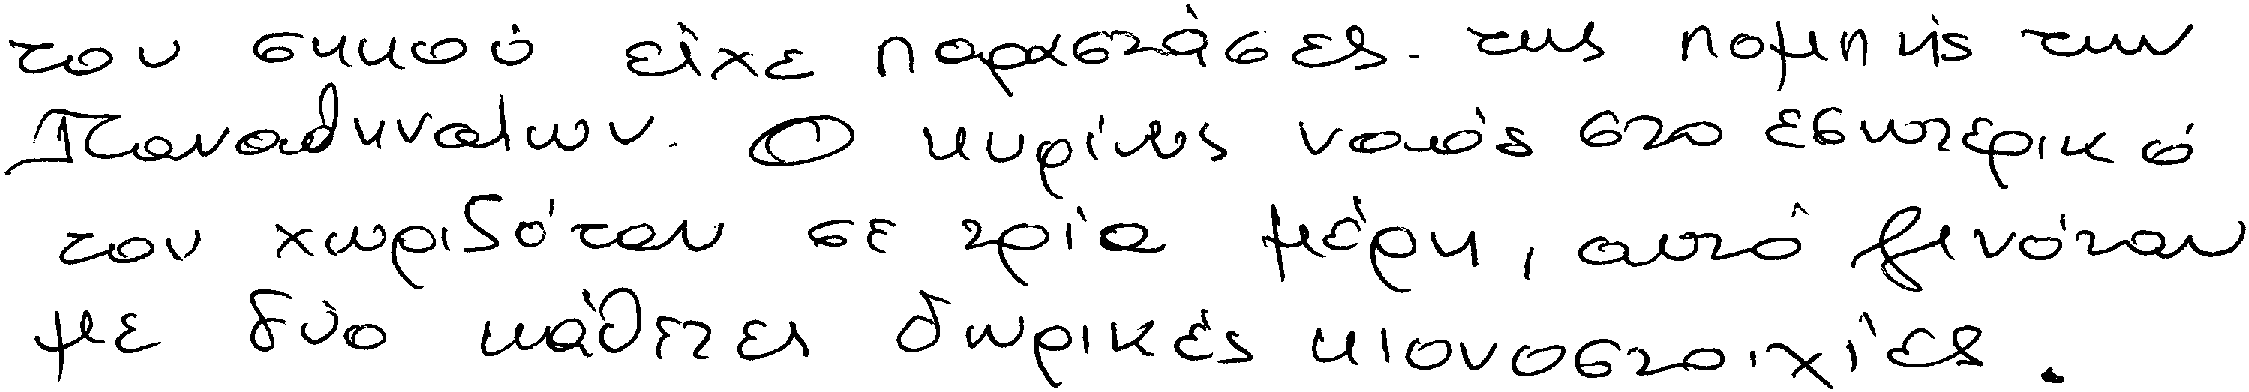 του σηκού είχε παραστάσεις της πομπής των
Παναθηναίων. Ο κυρίως ναός στο εσωτερικό
του χωριζόταν σε τρία μέρη, αυτό γινόταν
με δύο κάθετες δωρικές κιονοστοιχίες.